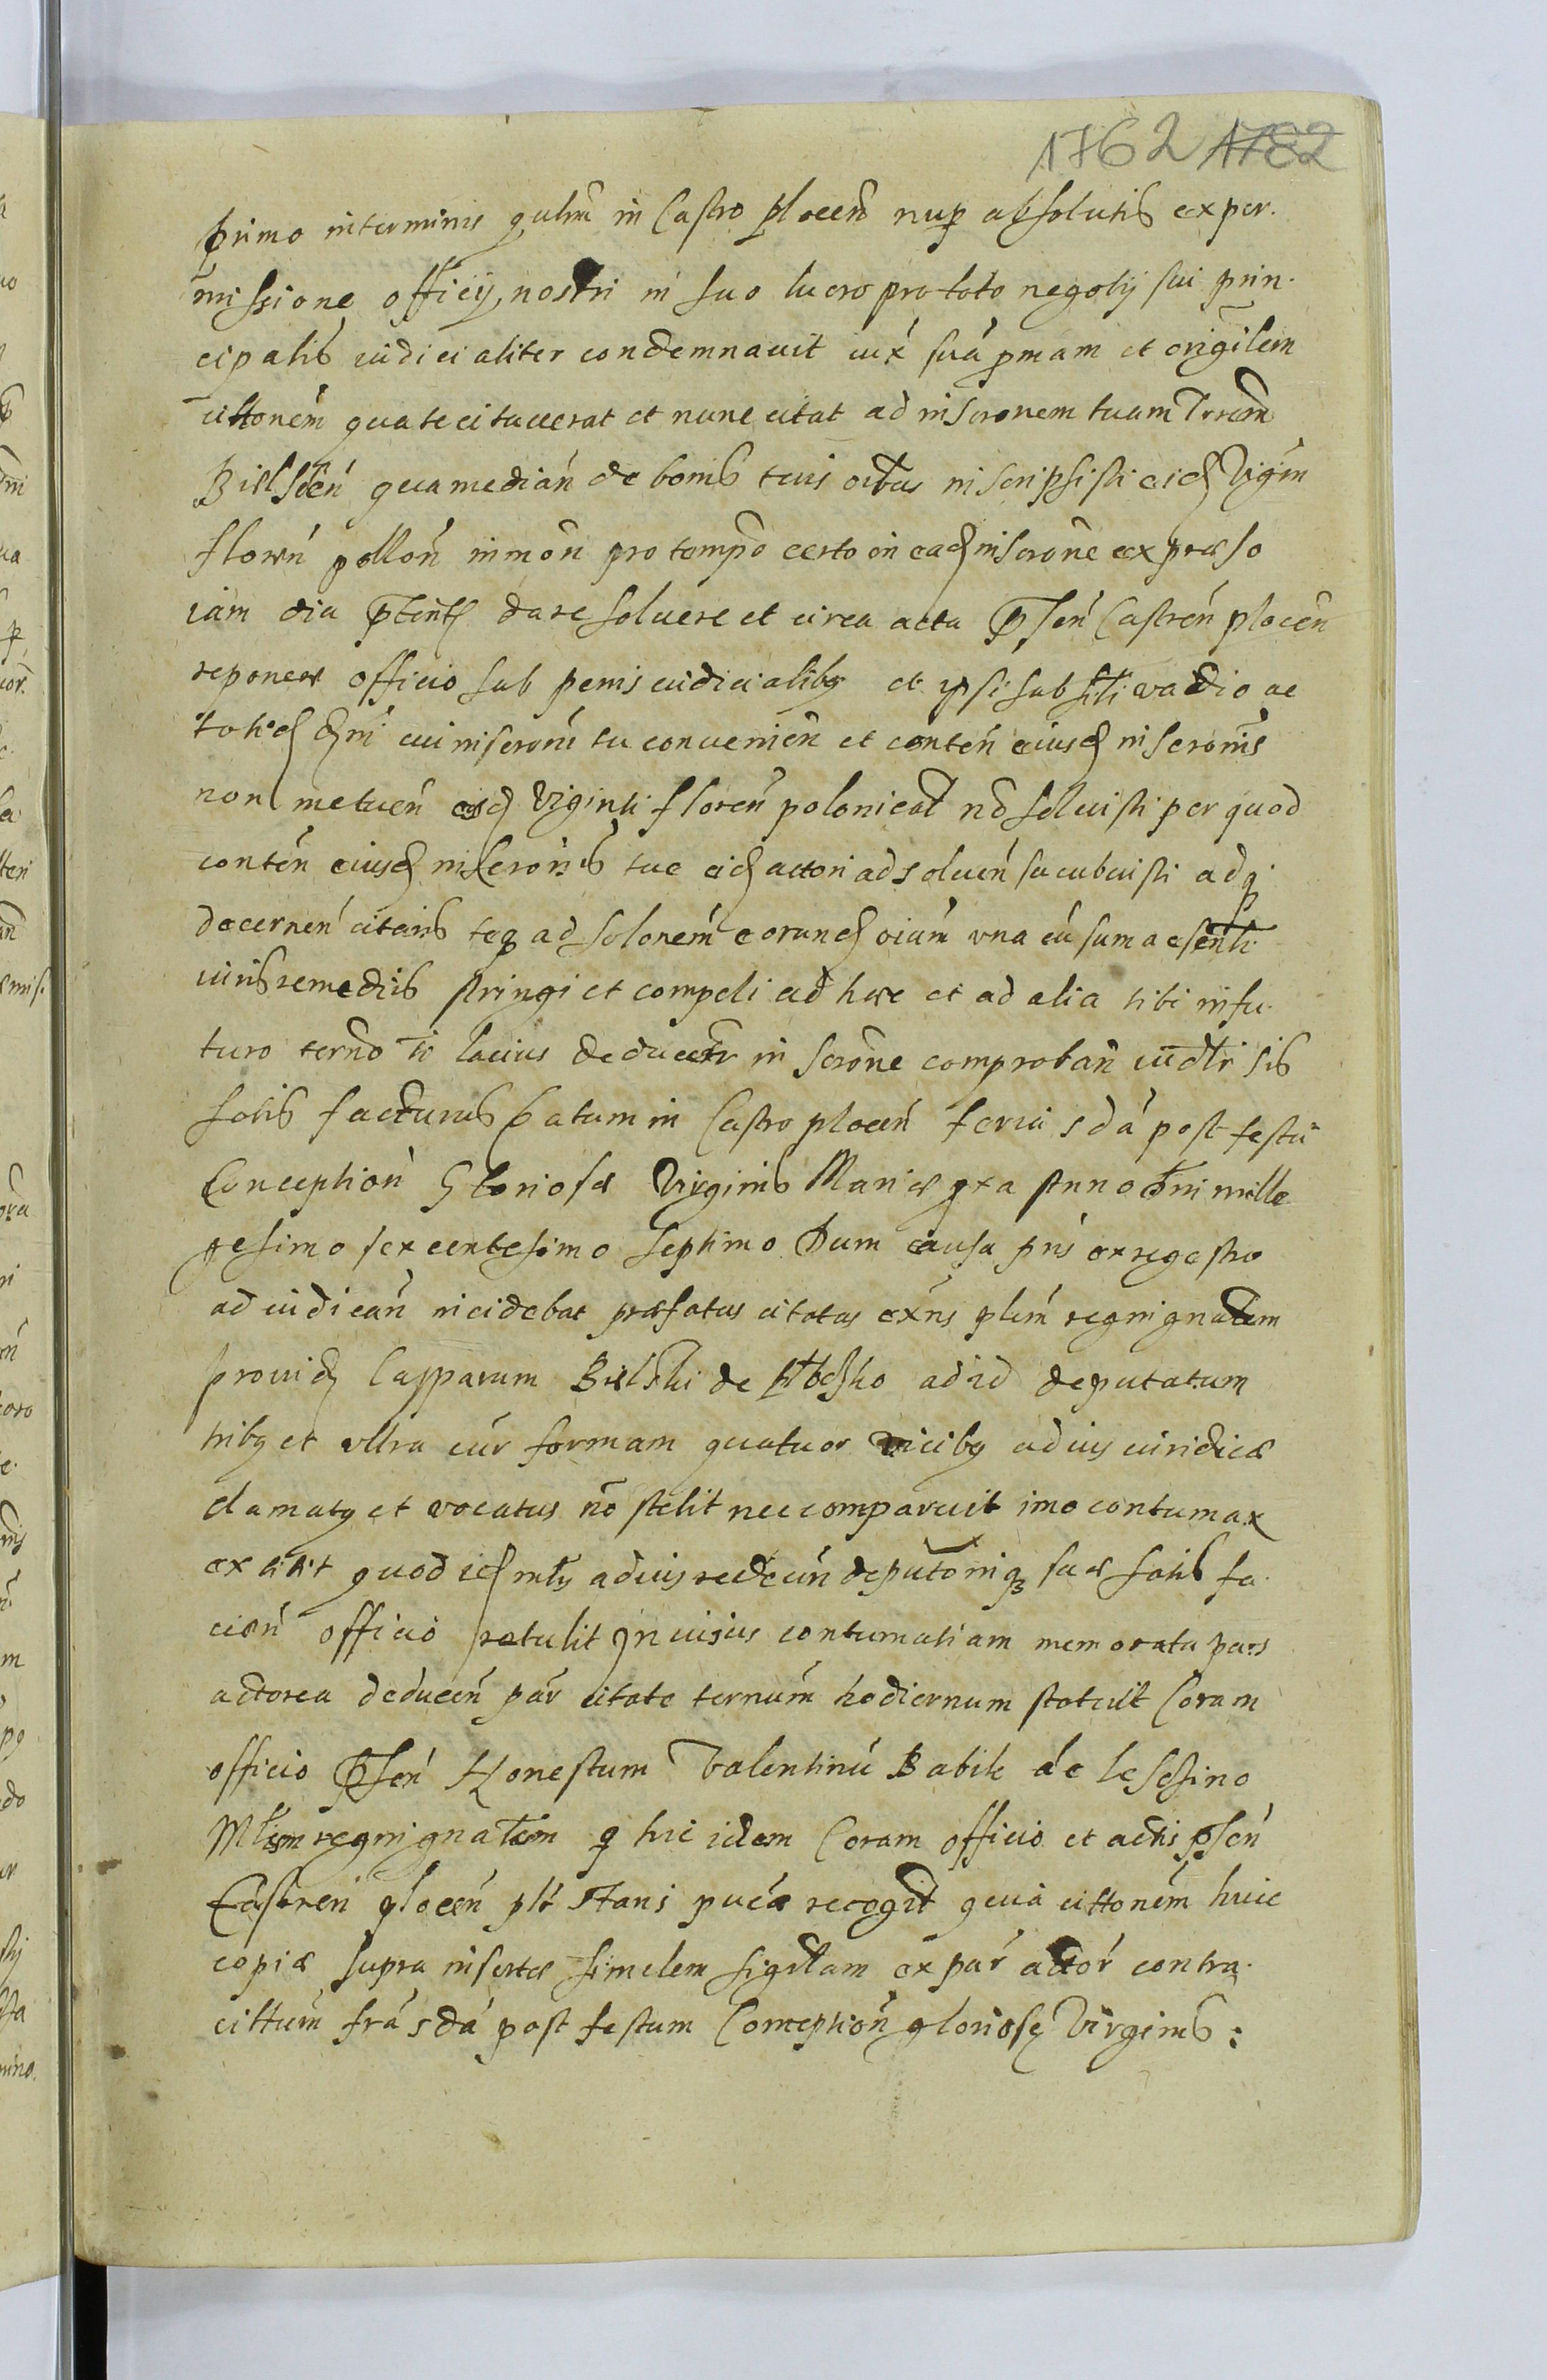 1762 1782
primo in terminis qulrn̄ in Castro plocen̄ nup absolutis ex per-
missione officij nostri in suo lucro pro toto negotij sui prin-
cipalis iudicialiter condemnauit iux suā pmam et origilem
cittonem qua te citauerat et nunc citat ad inscronem tuam Terren̄
Bielscen̄ qua median̄ de bonis tuis oibus inscripsisti eid Vigin
floren̄ pollon̄ in mon̄ pro tempo certo in ead inscrone expraeso
iam diu ptent dare soluere et circa acta psen̄ Castren̄ plocen̄
reponere officio sub penis iudicialibus et ipsi sub sili vadio ac
totid cui inscroni tu conuenien̄ et conten̄ eiusd inscronis
non metuen̄ eid Viginti floren̄ polonical nō soluisti per quod
conten̄ eiusd inscronis tue eid actori ad soluen̄ sucubuisti adq
decernen̄ citaris teq ad solonem eorund oium una cū suma
iuris remediis stringi et compeli ad haec et ad alia tibi in fu-
turo termō ti lacius deducetr in scrone comproban̄ iudtr sis
satis facturus Datum in Castro plocen̄ feria sda post festū
Conception̄ Gloriosae Virginis Mariae pxa Anno Dni mille
gesimo sexcentesimo septimo Dum causa pns ex regestro
ad iudican̄ incidebat praefatus citatus exns plim regni gnalem
prouid Casparum Bielski de ad id deputatum
tribus et ultra iur formam quatuor vicibus ad ius iuridicae
clamatus et vocatus nō stetit nec comparuit imo contumax
extitit quod id ad ius redeun̄ deputoniq suae satis fa-
cien̄ officio retulit In cuius contumatiam memorata pars
actorea deducen̄ par citate termum hodiernum statuit Coram
officio Psen̄ Honestum Valentinū Babik de Lesesino
Mlem regni gnalem q hic idem Coram officio et actis psen̄
Castren plocen̄ plr stans puca recogit quia cittonem huic
copiae supra insertae similem sigillam ex par actor contra
cittum fra sda post festum Conception̄ gloriosę Virginis: